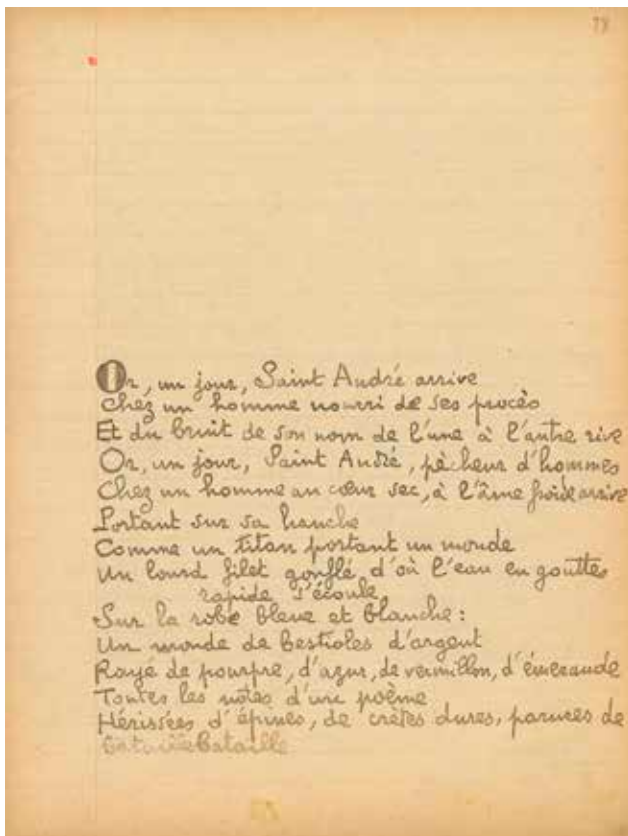 Or, un jour, Saint André arrive
Chez un homme nourri de ses procès
Et du bruit de son nom de l'une à l'autre rive
Or, un jour, Saint André, pècheur d'hommes
Chez un homme au cœur sec, à l'âme froide arrive
Portant sur sa hanche
Comme un titan portant un monde
Un lourd filet gonflé d'où l'eau en gouttes
rapide s'écoule
Sur la robe bleue et blanche :
Un monde de bestioles d'argent
Rayé de pourpre, d'azur, de vermillon, d'émeraude
Toutes les notes d'un poème
Hérissées d'épines, de crètes dures, parures de
bataille